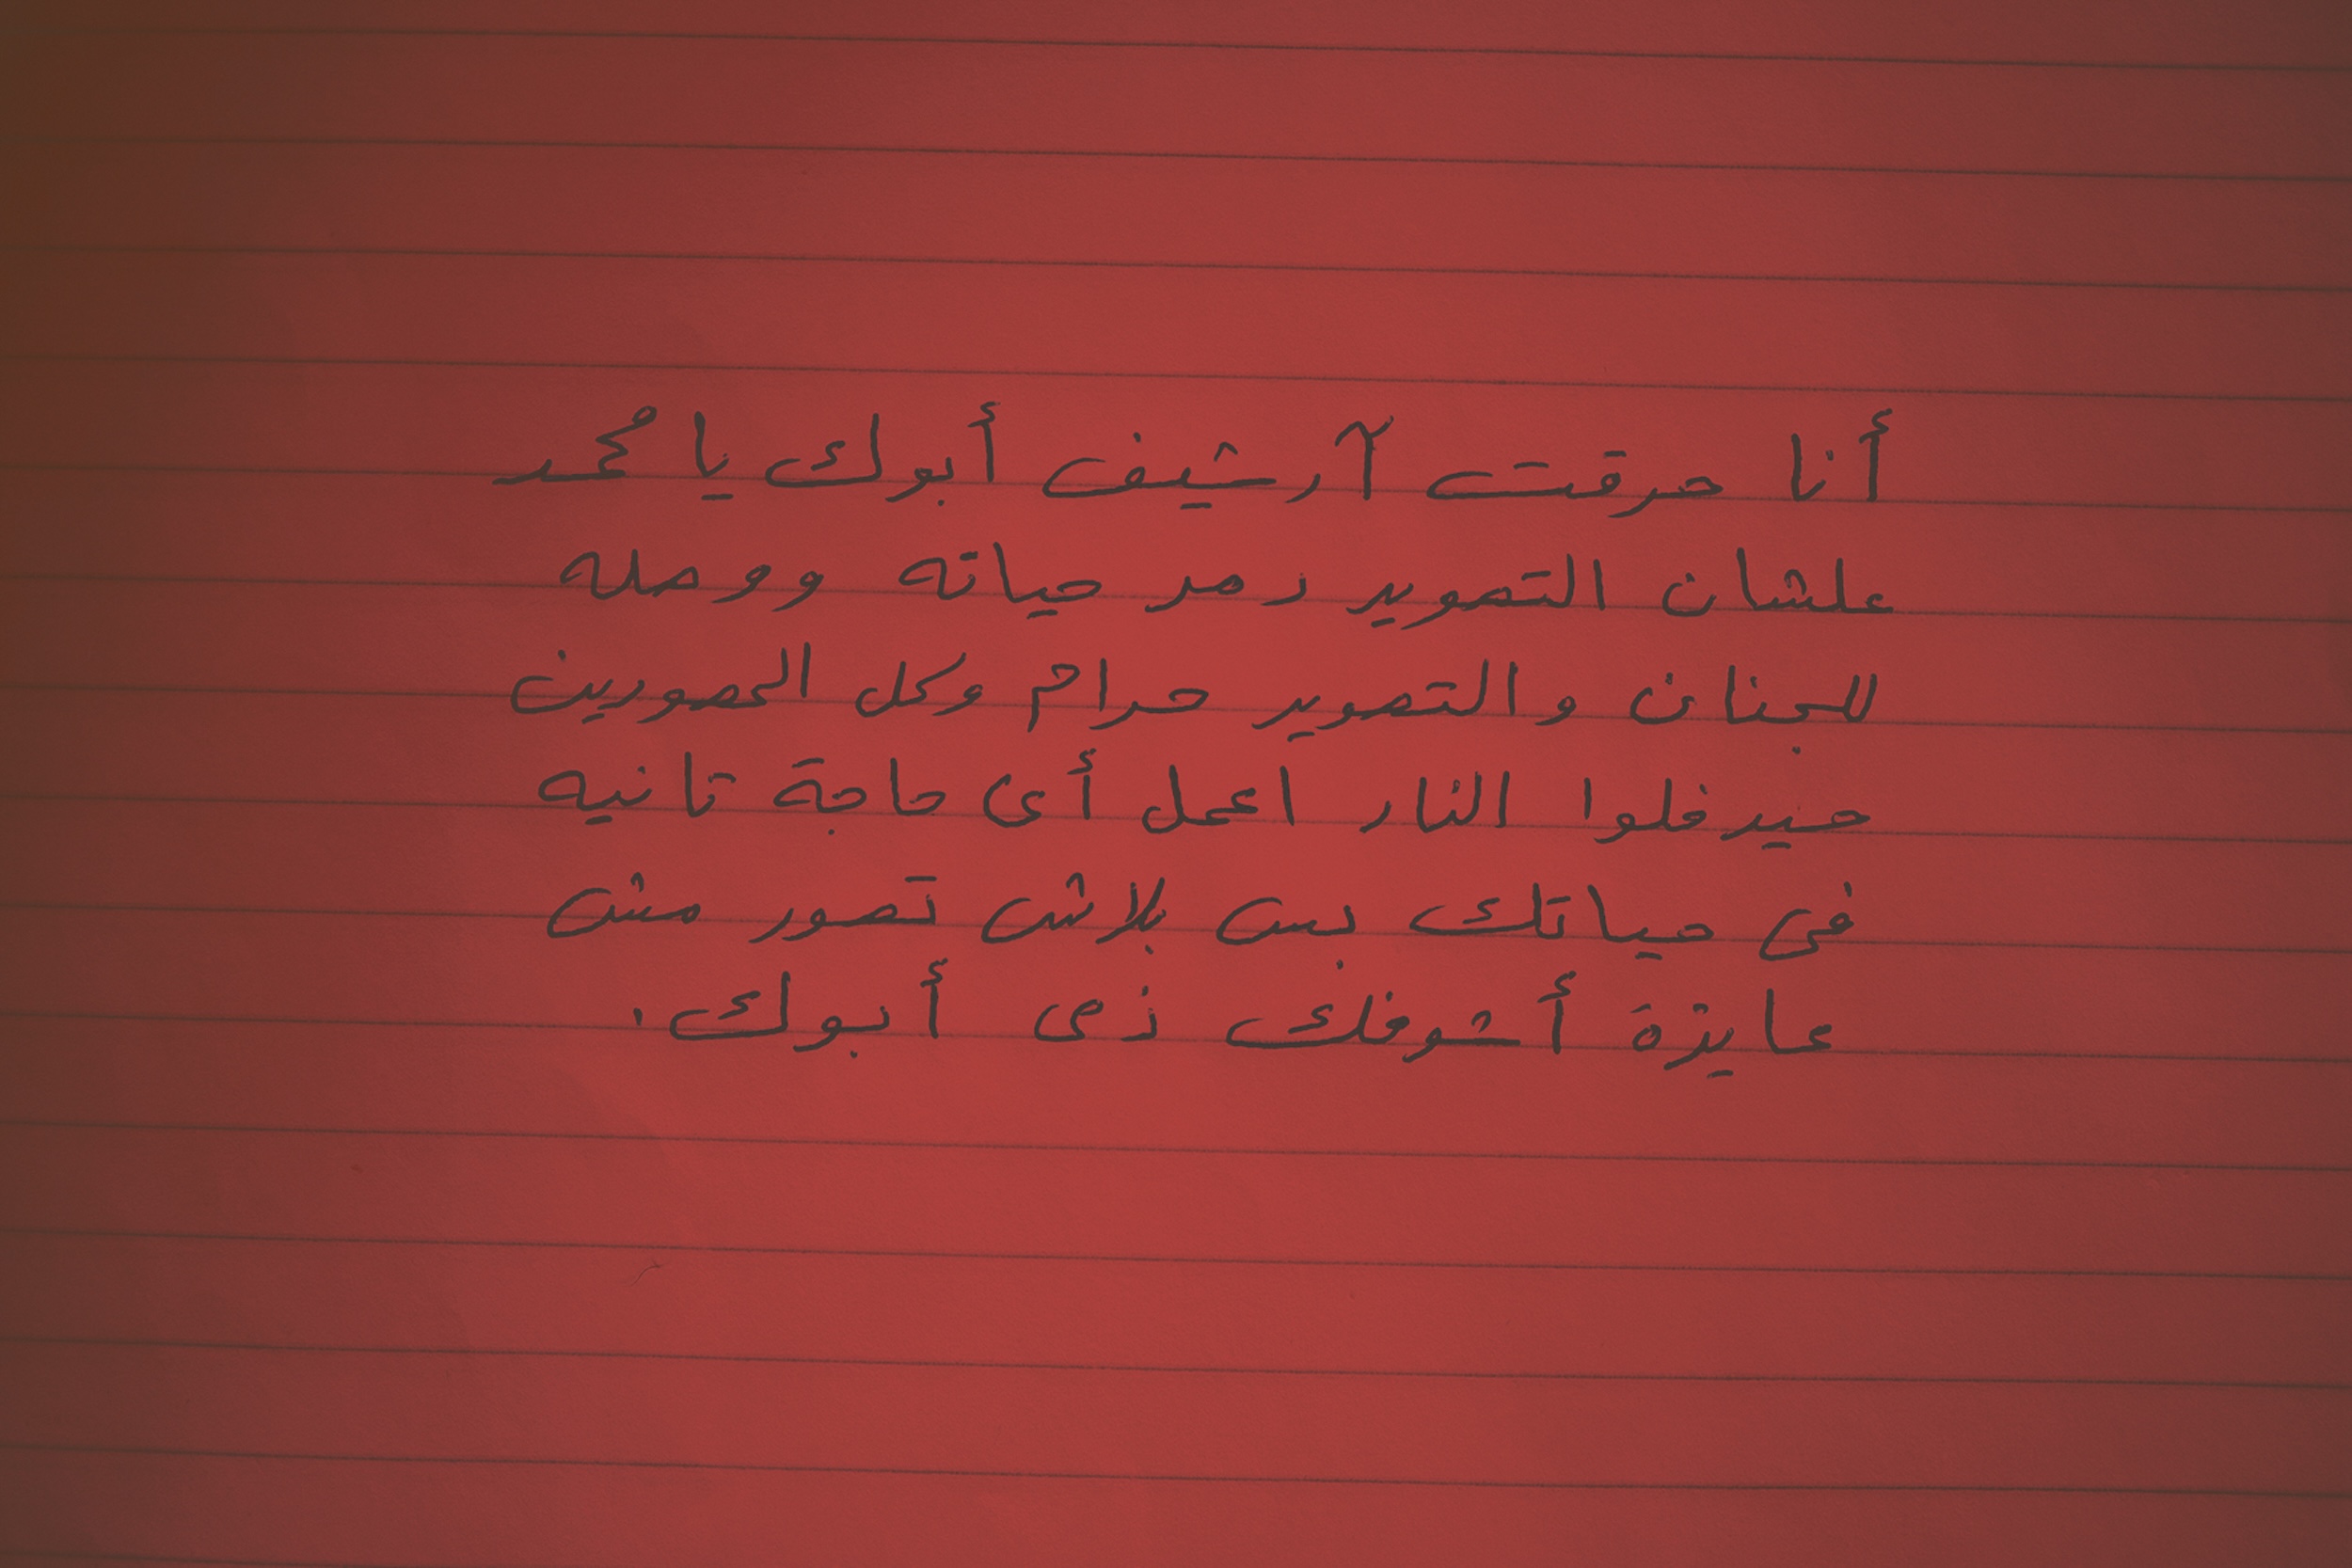 أنا حرقت آرشيف أبوك يا محمد
علشان التصوير دمر حياته ووصله
للجنان والتصوير حرام وكل المصورين
حيدخلوا النار اعمل أى حاجة تانيه
فى حياتك بس بلاش تصور مش
عايزة أشوفك ذى أبوك.